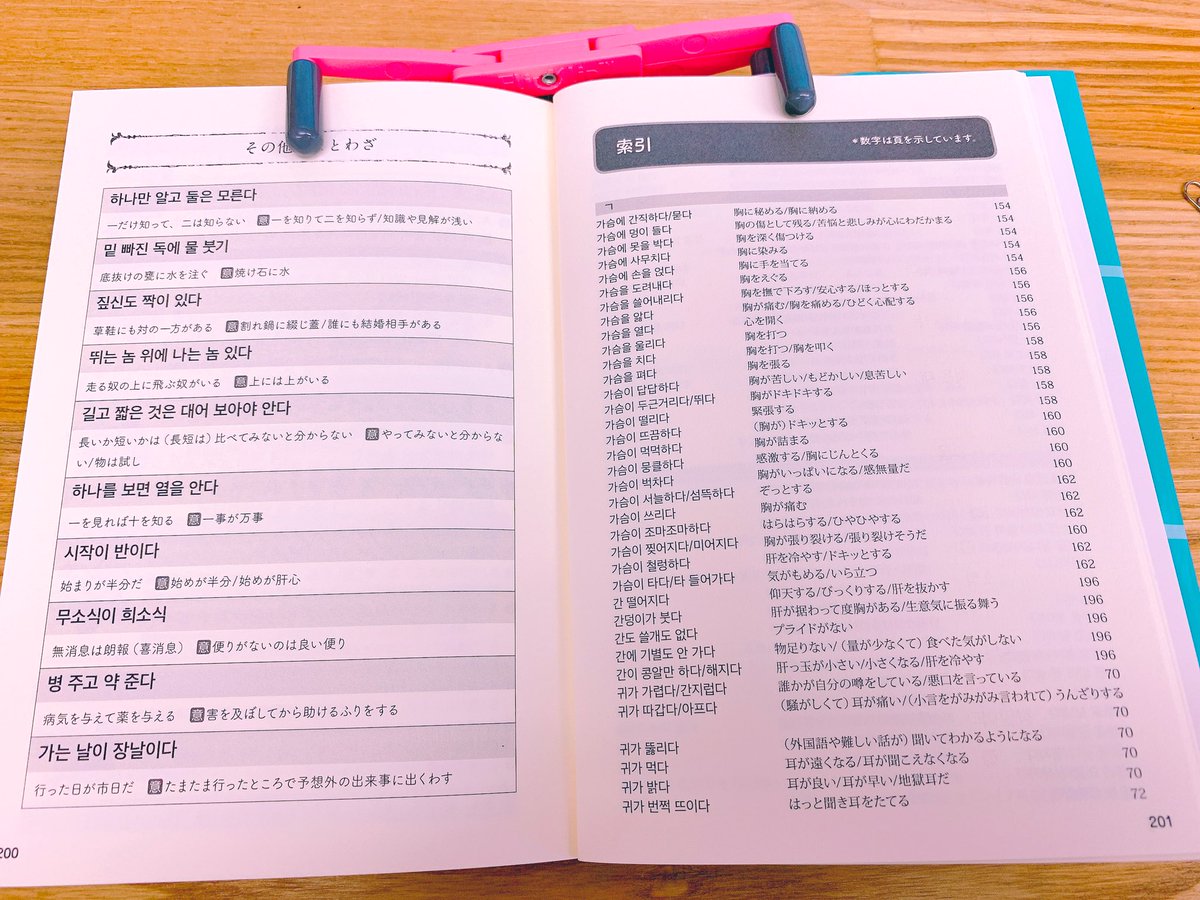 その他 とわざ
하나만 알고 둘은 모른다
一だけ知って、二は知らない 意一を知りて二を知らず/知識や見解が浅い
밑 빠진 독에 물 붓기
底抜けの甕に水を注ぐ 意焼け石に水
짚신도 짝이 있다
草鞋にも対の一方がある 意割れ鍋に綴じ蓋/誰にも結婚相手がある
뛰는 놈 위에 나는 놈 있다
走る奴の上に飛ぶ奴がいる 意上には上がいる
길고 짧은 것은 대어 보아야 안다
長いか短いかは(長短は)比べてみないと分からない 意やってみないと分からな
い/物は試し
하나를 보면 열을 안다
一を見れば十を知る 意一事が万事
시작이 반이다
始まりが半分だ 意始めが半分/始めが肝心
무소식이 희소식
無消息は朗報(喜消息) 意便りがないのは良い便り
병 주고 약 준다
病気を与えて薬を与える 意害を及ぼしてから助けるふりをする
가는 날이 장날이다
行った日が市日だ 意たまたま行ったところで予想外の出来事に出くわす
200
索引 *数字は頁を示しています。
ㄱ
가슴에 간직하다/묻다 胸に秘める/胸に納める 154
가슴에 멍이 들다 胸の傷として残る/苦悩と悲しみが心にわだかまる 154
가슴에 못을 박다 胸を深く傷つける 154
가슴에 사무치다 胸に染みる 154
가슴에 손을 얹다 胸に手を当てる 154
가슴을 도려내다 胸をえぐる 156
가슴을 쓸어내리다 胸を撫で下ろす/安心する/ほっとする 156
가슴을 앓다 胸が痛む/胸を痛める/ひどく心配する 156
가슴을 열다 心を開く 156
가슴을 울리다 胸を打つ 156
가슴을 치다 胸を打つ/胸を叩く 158
가슴을 펴다 胸を張る 158
가슴이 답답하다 胸が苦しい/もどかしい/息苦しい 158
가슴이 두근거리다/뛰다 胸がドキドキする 158
가슴이 떨리다 緊張する 158
가슴이 뜨끔하다 (胸が)ドキッとする 160
가슴이 먹먹하다 胸が詰まる 160
가슴이 뭉클하다 感激する/胸にじんとくる 160
가슴이 벅차다 胸がいっぱいになる/感無量だ 160
가슴이 서늘하다/섬뜩하다 ぞっとする 162
가슴이 쓰리다 胸が痛む 162
가슴이 조마조마하다 はらはらする/ひやひやする 162
가슴이 찢어지다/미어지다 胸が張り裂ける/張り裂けそうだ 160
가슴이 철렁하다 肝を冷やす/ドキッとする 162
가슴이 타다/타 들어가다 気がもめる/いら立つ 162
간 떨어지다 仰天する/びっくりする/肝を抜かす 196
간덩이가 붓다 肝が据わって度胸がある/生意気に振る舞う 196
간도 쓸개도 없다 プライドがない 196
간에 기별도 안 가다 物足りない/(量が少なくて)食べた気がしない 196
간이 콩알만 하다/해지다 肝っ玉が小さい/小さくなる/肝を冷やす 196
귀가 가렵다/간지럽다 誰かが自分の噂をしている/悪口を言っている 70
귀가 따갑다/아프다 (騒がしくて)耳が痛い/(小言をがみがみ言われて)うんざりする
70
귀가 뚫리다 (外国語や難しい話が)聞いてわかるようになる 70
귀가 먹다 耳が遠くなる/耳が聞こえなくなる 70
귀가 밝다 耳が良い/耳が早い/地獄耳だ 70
귀가 번쩍 뜨이다 はっと聞き耳をたてる 72
201